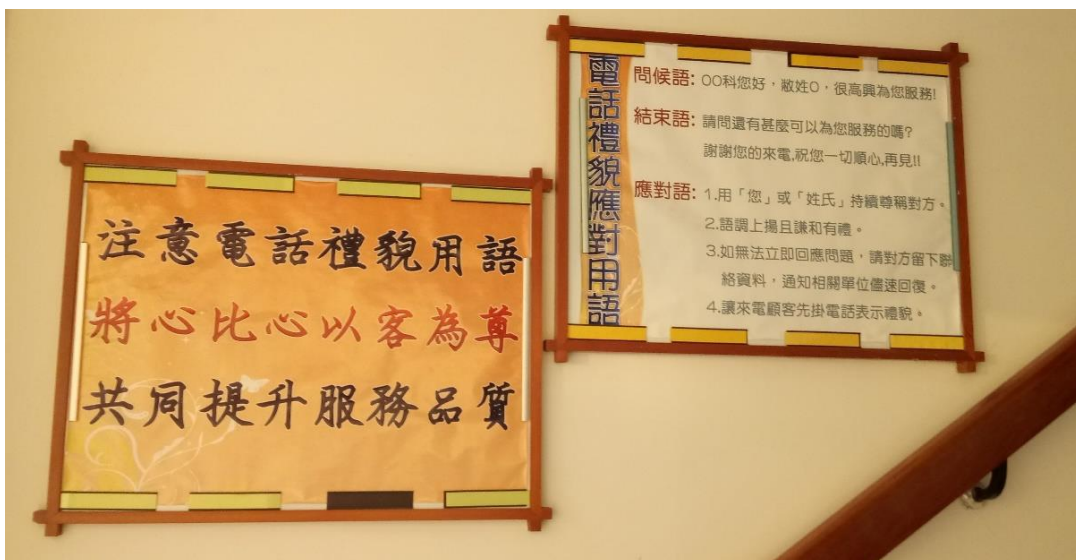 注意電話禮貌用語
將心比心以客為尊
共同提升服務品質
電話禮貌應對用語
問候語: OO科您好，敝姓O，很高興為您服務!
結束語: 請問還有甚麼可以為您服務的嗎?
謝謝您的來電,祝您一切順心,再見!!
應對語: 1.用「您」或「姓氏」持續尊稱對方。
2.語調上揚且謙和有禮。
3.如無法立即回應問題，請對方留下聯
絡資料，通知相關單位儘速回復。
4.讓來電顧客先掛電話表示禮貌。